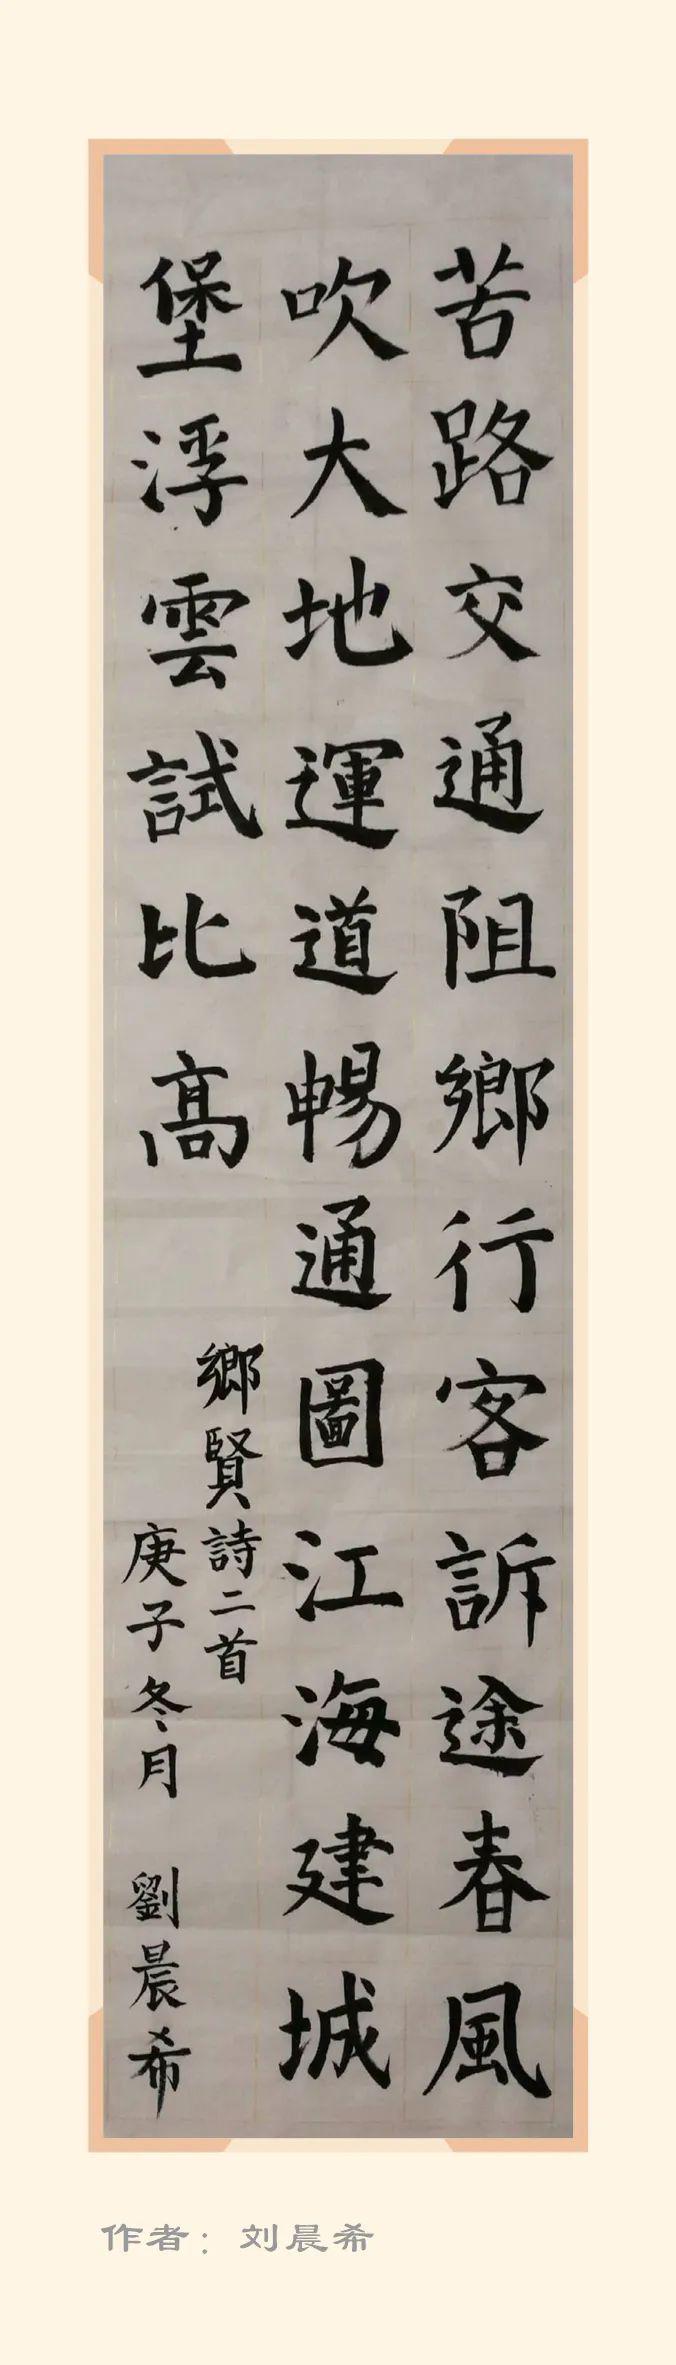 苦路交通阻鄉行客訴途春風
吹大地運道暢通圖江海建城
堡浮雲試比高
鄉賢詩二首
庚子冬月 劉晨希
作者：刘晨希